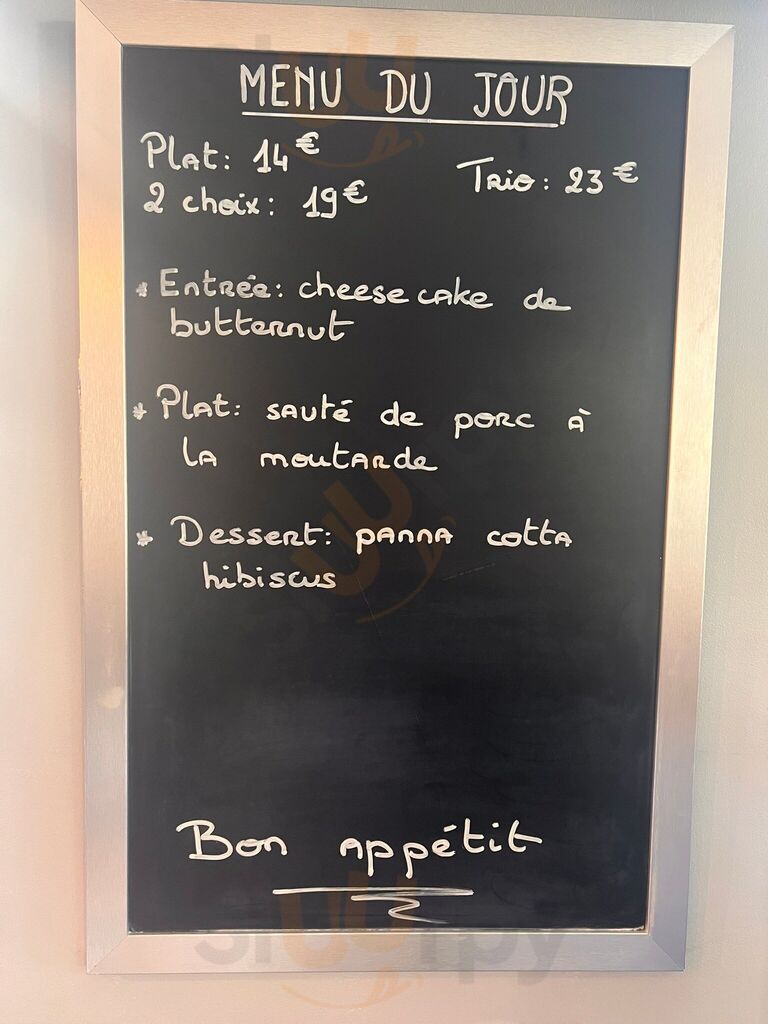 MENU DU JOUR
Plat: 14€
Trio: 23€
2 choix: 19€
* Entrée: cheese cake de
butternut
* Plat: sauté de porc à
la moutarde
* Dessert: panna cotta
hibiscus
Bon appétit
sluurpy